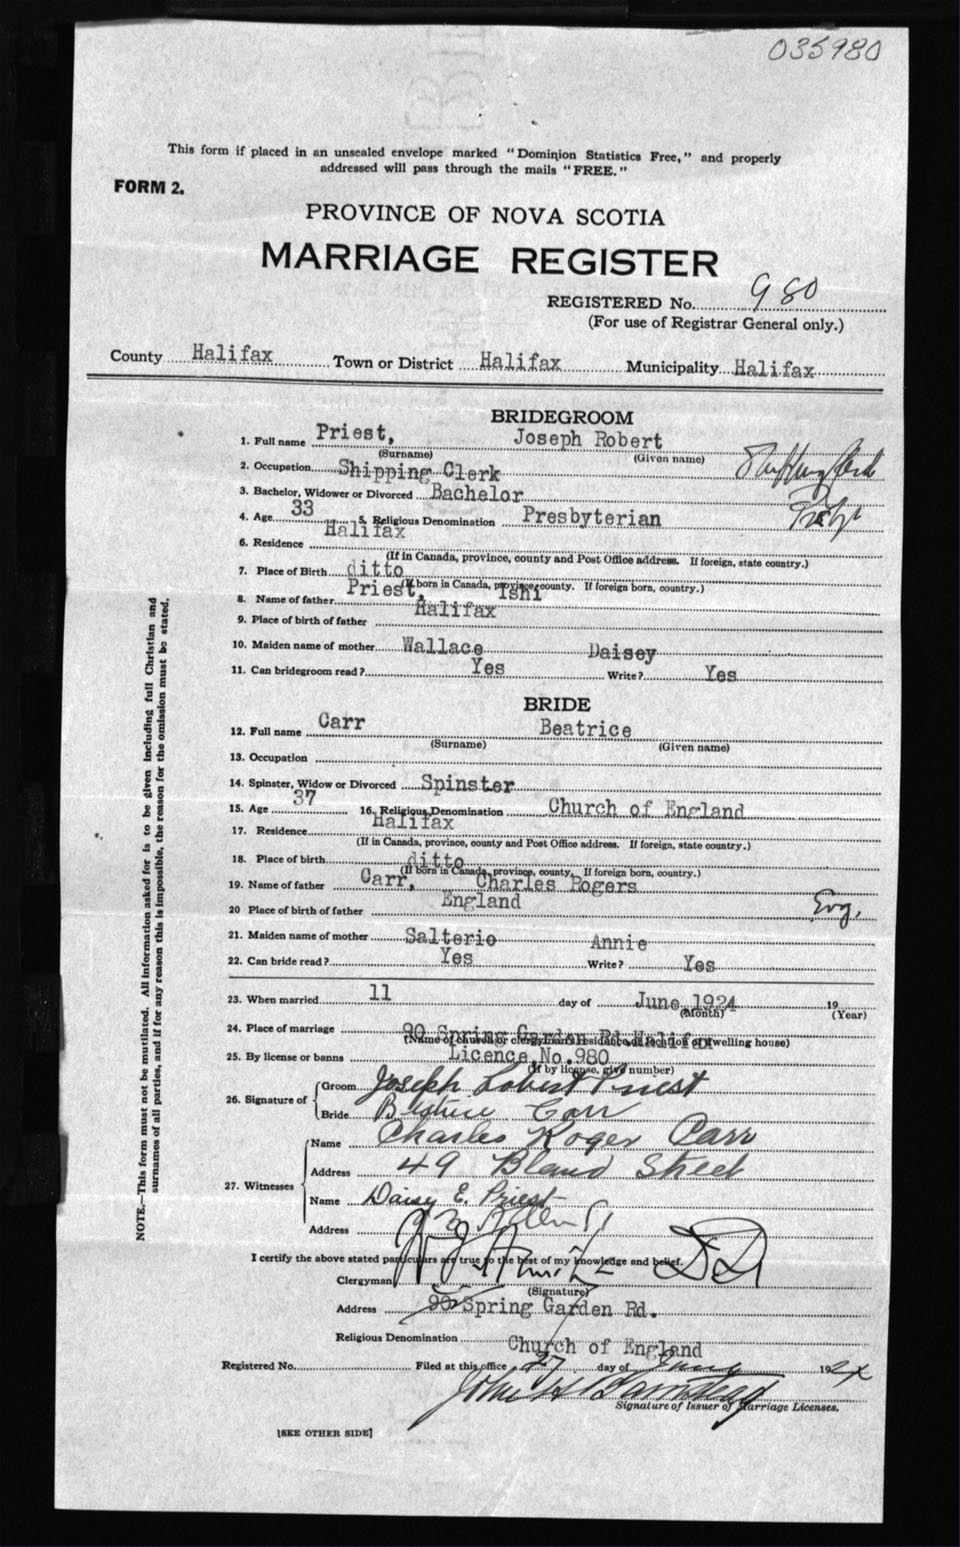 035980
This form if placed in an unsealed envelope marked "Dominion Statistics Free," and properly
addressed will pass through the mails "FREE."
FORM 2.
PROVINCE OF NOVA SCOTIA
MARRIAGE REGISTER
REGISTERED No. 980
(For use of Registrar General only.)
County Halifax Town or District Halifax Municipality Halifax
BRIDEGROOM
1. Full name Priest, Joseph Robert
(Surname) (Given name)
2. Occupation Shipping Clerk Shipping Clerk
3. Bachelor, Widower or Divorced Bachelor
4. Age 33 5. Religious Denomination Presbyterian
6. Residence Halifax
(If in Canada, province, county and Post Office address. If foreign, state country.)
7. Place of Birth ditto
(If born in Canada, province, county. If foreign born, country.)
8. Name of father Priest, Ishi
9. Place of birth of father Halifax
10. Maiden name of mother Wallace Daisey
11. Can bridegroom read? Yes Write? Yes
BRIDE
12. Full name Carr Beatrice
(Surname) (Given name)
13. Occupation
14. Spinster, Widow or Divorced Spinster
15. Age 37 16. Religious Denomination Church of England
17. Residence Halifax
(If in Canada, province, county and Post Office address. If foreign, state country.)
18. Place of birth ditto
(If born in Canada, province, county, If foreign born, country.)
19. Name of father Carr, Charles Rogers
20 Place of birth of father England Eng.
21. Maiden name of mother Salterio Annie
22. Can bride read? Yes Write? Yes
23. When married 11 day of June 1924 19
(Month) (Year)
24. Place of marriage 90 Spring Garden Rd Halifax
(Name of church or clergyman's residence or location of dwelling house)
25. By license or banns Licence No. 980
(If by license, give number)
26. Signature of Groom Joseph Robert Priest
Bride Beatrice Carr
27. Witnesses Name Charles Roger Carr
Address 49 Bland Street
Name Daisy E. Priest
Address
I certify the above stated particulars are true to the best of my knowledge and belief.
Clergyman DD
(Signature)
Address 90 Spring Garden Rd.
Religious Denomination Church of England
Registered No. Filed at this office 27 day of June 1924
Signature of Issuer of Marriage Licenses.
[SEE OTHER SIDE]
NOTE.—This form must not be mutilated. All information asked for is to be given including full Christian and
surnames of all parties, and if for any reason this is impossible, the reason for the omission must be stated.